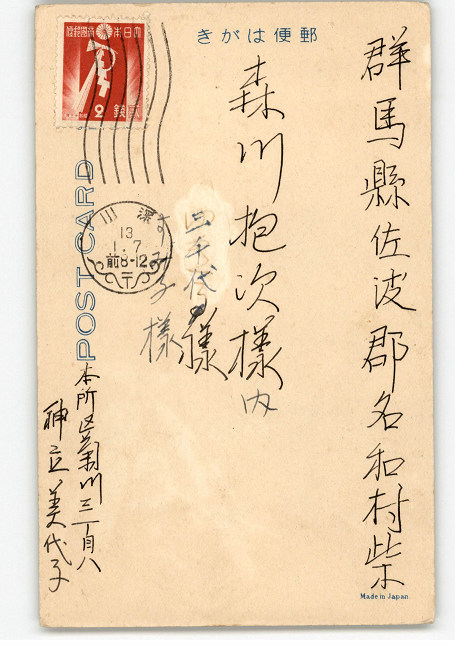 郵便はがき
群馬縣佐波郡名和村柴
森川抱次様内
千代子様
子様
本所區菊川三丁目八
神立美代子
POST CARD
深川
13
1.7
前8-12
〒
2
Made in Japan